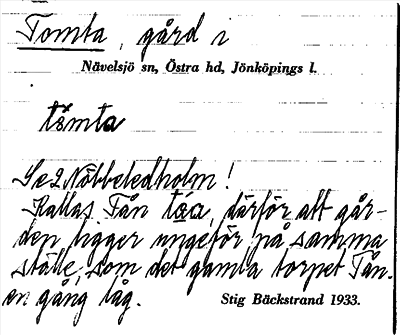 Tomta, gård i
Nävelsjö sn, Östra hd, Jönköpings l.
tåmta
Se 2 Nöbbeledholm!
Kallas Tån tåa, därför att går-
den ligger ungefär på samma
ställe, som det gamla torpet Tån.
en gång låg.
Stig Bäckstrand 1933.